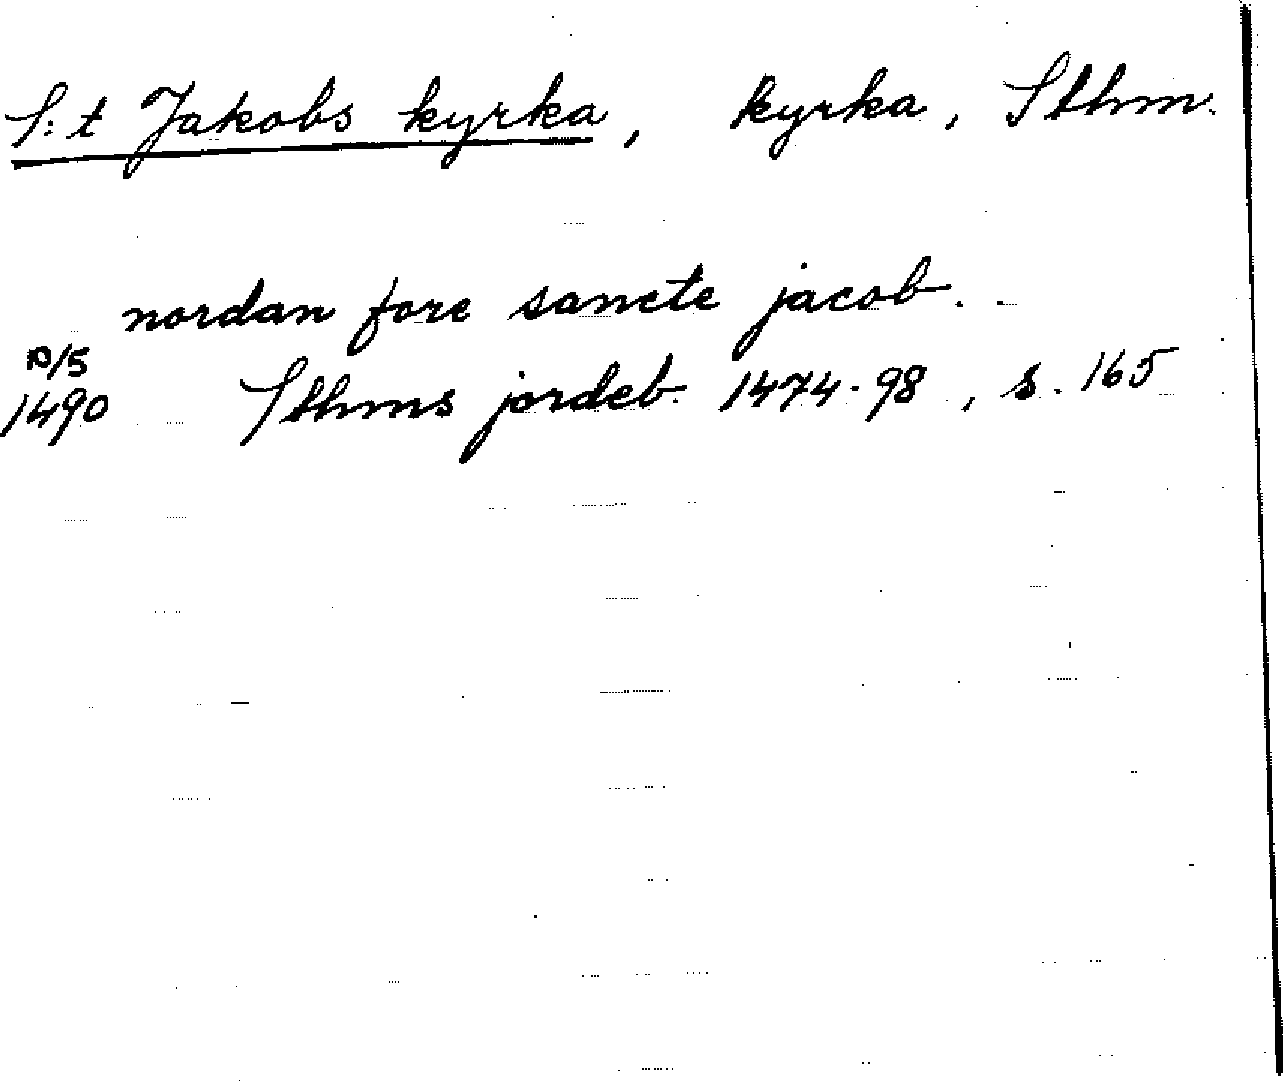 S:t Jakobs kyrka, kyrka, Sthm.
nordan fore sancte jacob.
10/5
1490 Sthms jordeb. 1474-98, s. 165